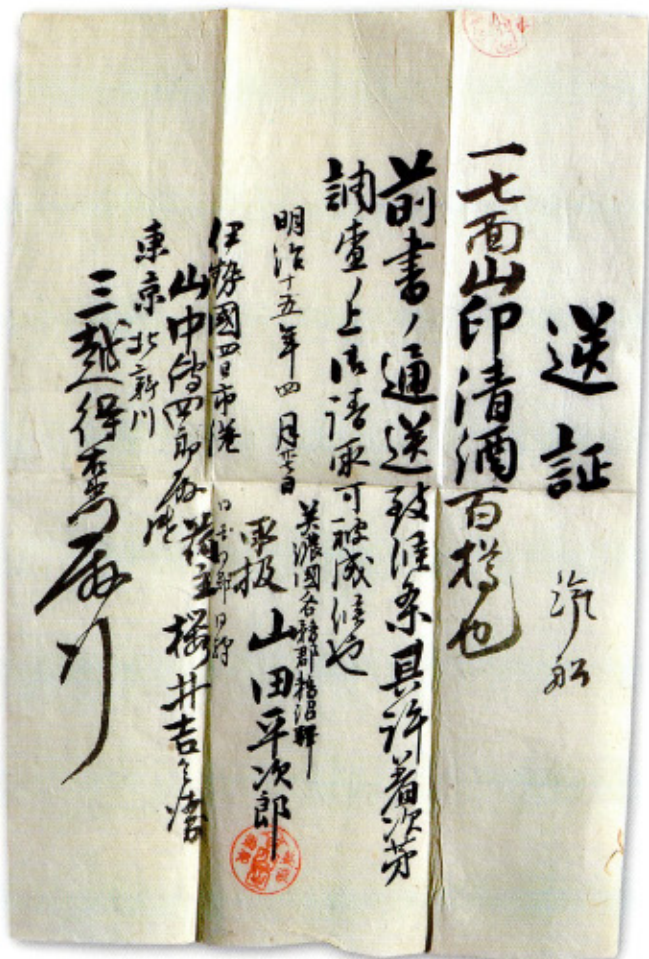 送証
汽船
一七面山印清酒百樽也
前書ノ通送致候条具許着次第
調査ノ上御請取可被成候也
明治十五年四月廿七日
美濃國各務郡鵜沼驛
取扱 山田平次郎
荷主 櫻井吉兵衛
伊勢國四日市港
山中傳四郎殿
東京北新川
三越得右衛門殿行